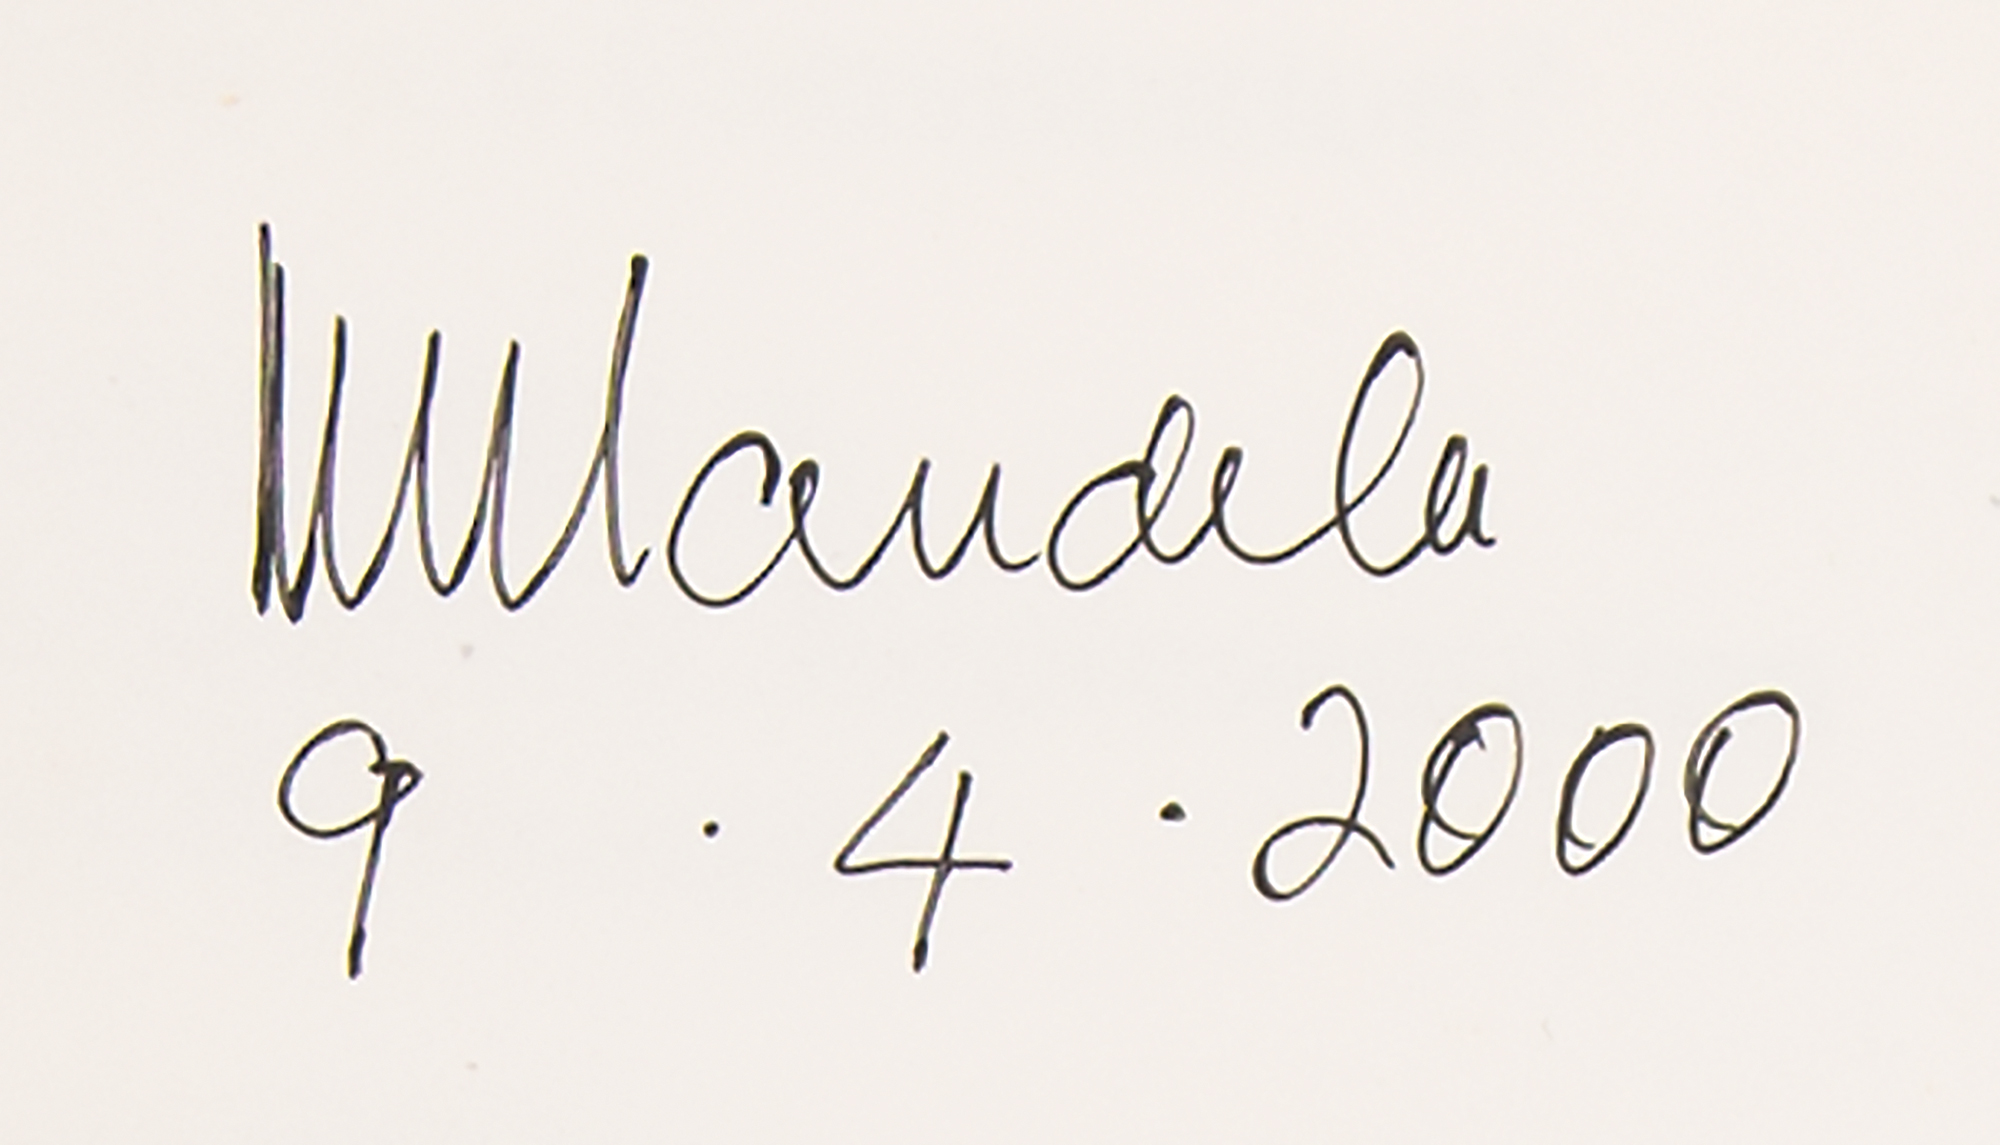 Mandela
9 . 4 . 2000